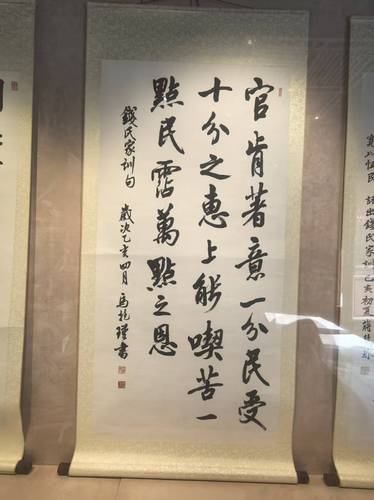 官肯著意一分民受
十分之惠上能喫苦一
點民霑萬點之恩
錢氏家訓句 歲次己亥四月 馬 書
語出錢氏家訓己亥初夏